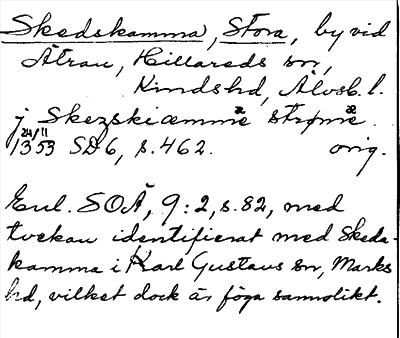 Skedskamma, Stora, by vid
Ätran, Hillareds sn,
Kindshd, Älvsb. l.
j Skezskiæmmæ strømæ.
24/11
1353 SD 6, s. 462. orig.
Enl. SOÄ, 9:2, s. 82, med
tvekan identifierat med Skeda-
kamma i Karl Gustavs sn, Marks
hd, vilket dock är föga sannolikt.